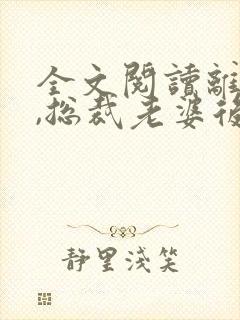 全文閱讀離
,總裁老婆後
靜里淺笑